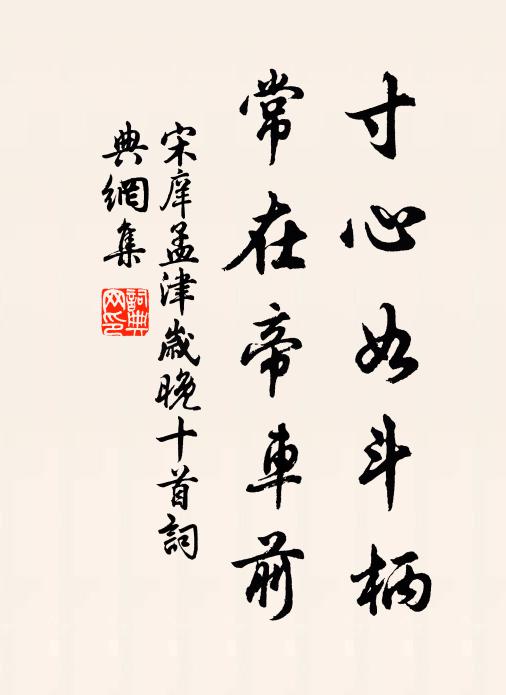 寸心如斗柄
常在帝車前
宋庠孟津歲晚十首詞
典網集
詞典
网印